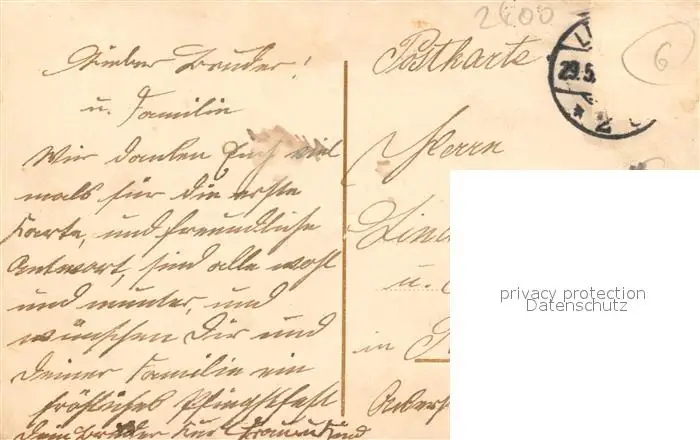 Lieber Bruder!
u. Familie
Wir danken Euch viel
mals für die erste
Karte, und freundliche
Antwort, sind alle wohl
und munter, und
wünschen Dir und
Deiner Familie ein
fröhliches Pfingstfest
Dein Bruder Frau u Kind
2600
Postkarte
29.5.
* 2
6
Herrn
u.
in
privacy protection
Datenschutz